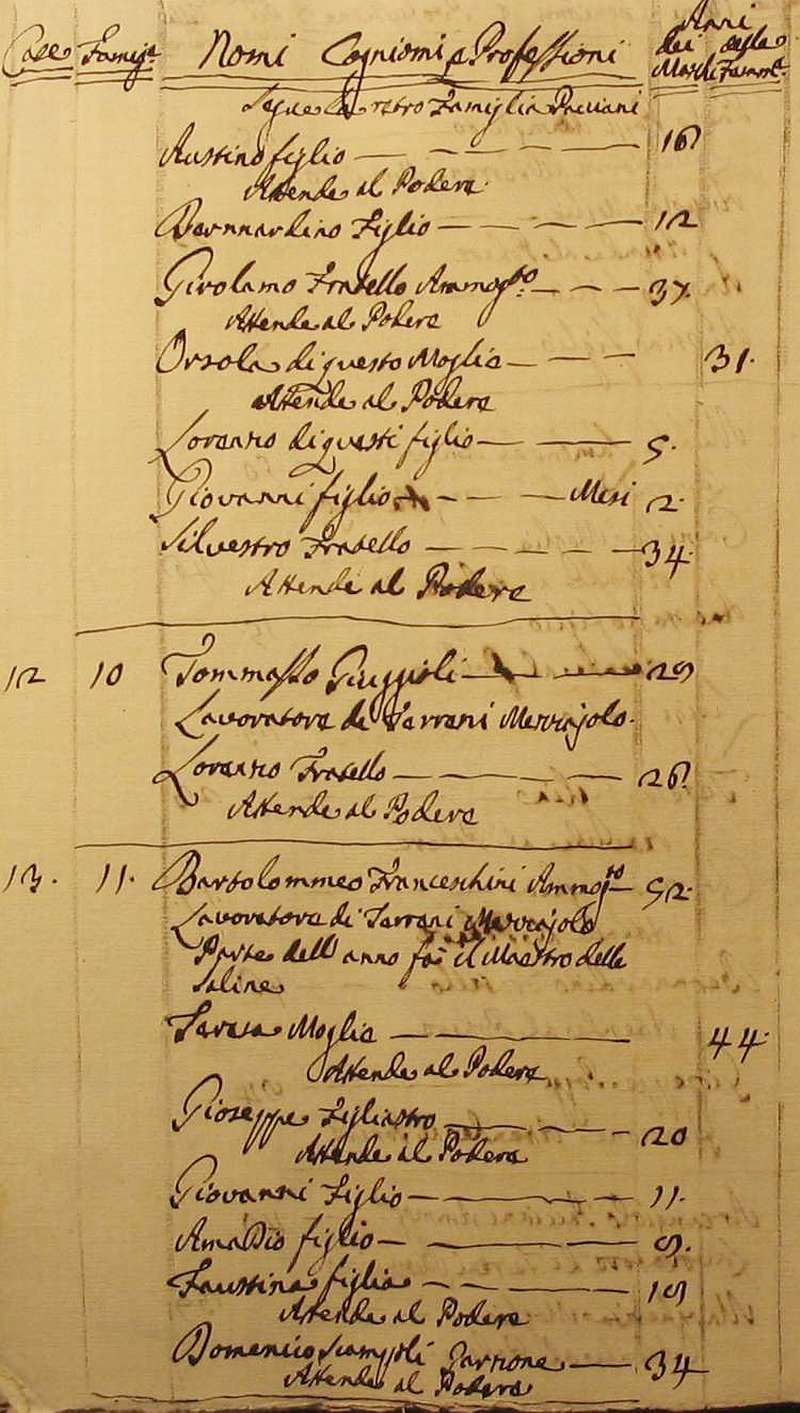 Case Famig.e Nomi Cogniomi, e Professioni Anni dei Maschi delle Femm.e
Segue la retro Famiglia Pacciani
Austino figlio — — — — 16
Attende al Podere
Bernnardino Figlio — — — — 12
Girolamo Fratello Ammog.to — — — 37.
Attende al Podere
Orsola di questo Moglie — — — 31.
Attende al Podere
Lorenzo di questi figlio — — 5.
Giovanni figlio — — — Mesi 2.
Silvestro Fratello — — — — 34
Attende al Podere
12 10 Tommasso — — — 29
Lavoratore di Terreni Mezzajolo.
Lorenzo Fratello — — — — 26
Attende al Podere
13. 11. Bartolommeo Franceschini Ammog.to — 52.
Lavoratore di Terreni Mezzajolo
Parte dell'anno fà il Mastro delle
Saline
Teresa Moglie — — 44.
Attende al Podere
Gioseppe Figliastro — — — 20
Attende al Podere
Giovanni Figlio — — — 11.
Amadio figlio — — — 9.
Faustina figlia — — — 19
Attende al Podere
Domenico Garzone — 34
Attende al Podere